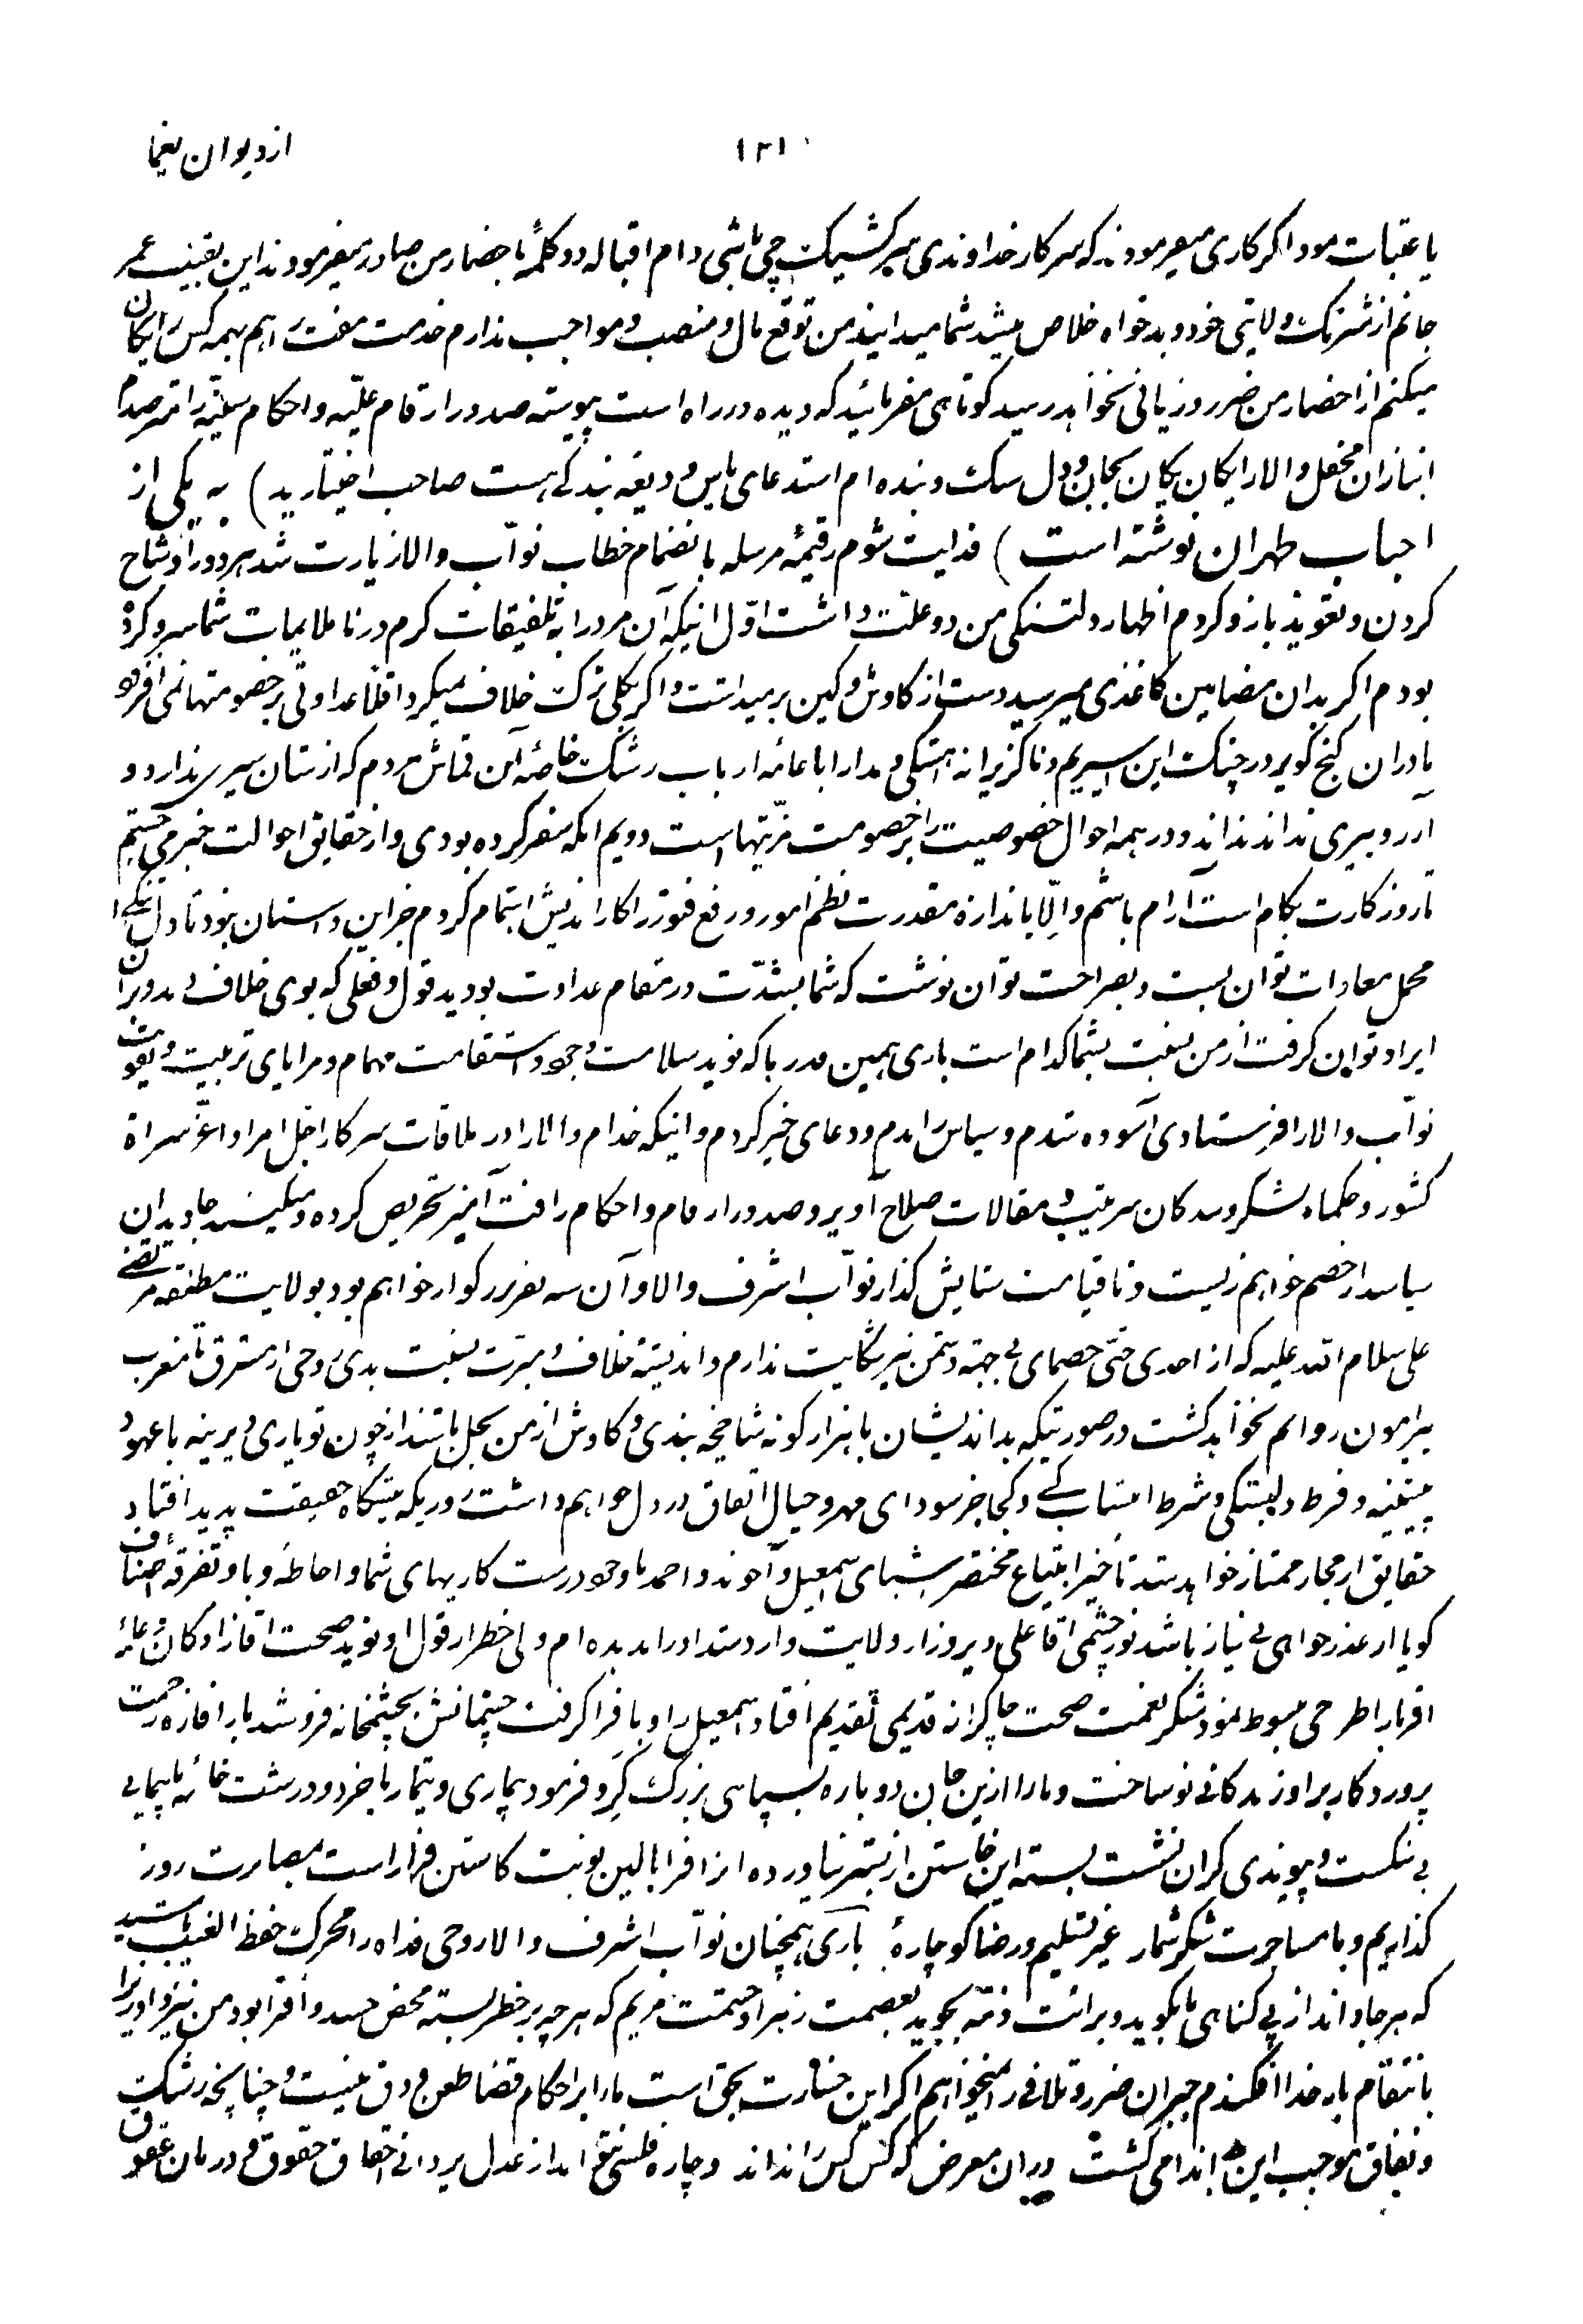 ۱۲۱
از دیوان یغما
یا عتبات مودا کرکاری میفرمودند که سرکار خداوندی سرکشیکچی باشی دام اقباله دو کلمهٔ باحضار من صادر میفرمودند این بقیت عمر
جانم از شر ولایتی خود و بدخواه خلاص میشد شما میدانید من توقع مال و منصب و مواجب ندارم خدمت مفت را هم بهمه کس رایکان
میکنم از احضار من ضرر و زیانی نخواهد رسید کوتاهی مفرمائید که دیده در راه است پیوسته صدور ارقام علیّه و احکام سنیّه را مترصدم
انبازان محفل والا رایکان یکان بجان و دل سکت و بنده ام استدعای پاس ودیعه بندکی هست صاحب اختیارید) به یکی از
احباب طهران نوشته است) فدایت شوم رقیمهٔ مرسله بانضمام خطاب نوّاب والا زیارت شد هر دو را وشاح
کردن و تعویذ بازو کردم اظهار دلتنکی من دو علّت داشت اوّل اینکه آن مرد را به تلفیقات کرم در ناملایمات شما سرد کرده
بودم اکر بدان مضامین کاغذی میرسید دست از کاوش و کین برمیداشت و اکر بکلی ترک خلاف نمیکرد اقلّا عداوتی بر خصومتها نمی افزود
یا در آن کنج کویر در چنک این اسیریم و ناکزیر آهستکی و مدارا با عامّه ارباب رشک خاصّه آن قماش مردم که از ستان سیری ندارد و
آزرو بیری نداند نداند و در همه احوال خصوصیت را بر خصومت مزیّتهاست دویم آنکه سفر کرده بودی و از حقایق احوالت خبر می جستم
تا روز کارت بکام است آرام باشم و الّا باندازه مقدرت نظم امور و رفع فتور را کار اندیش اهتمام کردم جز این داستان بود تا دل تنکی را
محمل معادات توان بست و بصراحت توان نوشت که شما بشدّت در مقام عداوت بودید قول و فعلی که بوی خلاف دهد و بر آن
ایراد توان کرفت از من نسبت بشما کدام است باری همین قدر با که نوید سلامت وجود و استقامت مهام و مرایای تربیت و تقویت
نوّاب والا را فرستادی آسوده شدم و سپاس راندم و دعای خیر کردم و اینکه خدام والا را در ملاقات سرکار اجل امرا و اعزّ سراة
کشور و حکماء لشکر و بندکان سرتیب و مقالات صلاح آویز و صدور ارقام و احکام رافت آمیز تحریص کرده و میکنید جاویدان
سپاسدار خصم خواهم زیست و تا قیامت ستایش کذار نوّاب اشرف والا و آن سه نفر بزرکوار خواهم بود بولایت مطلقه مرتضی
علی سلام الله علیه که از احدی حتّی خصمای بی جهة دشمن نیز شکایت ندارم و اندیشهٔ خلاف مبرّت نسبت بدی روحی از مشرق تا مغرب
پیرامون روانم نخواهد کشت در صورتیکه بداندیشان با هزار کونه شاخچه بندی و کاوش از من بحل باشند از چون تو یاری دیرینه با عهود
متینه و فرط دلبستکی و شرط انتساب کی و کجا جز سودای مهر و خیال اتفاق در دل خواهم داشت روزیکه پیشکاه حقیقت پدید افتاد
حقایق از مجاز ممتاز خواهد شد تاخیر ابتیاع مختصر شبهای اسمعیل و آخوند و احمد با وجود درست کاریهای شما و احاطه وبا و تفرقه اصناف
کویا از عذر خواهی بی نیاز باشد نور چشمی آقا علی دیروز از ولایت وارد شد او را ندیده ام ولی خطر از قول او نوید صحت آقازادکان و عامّه
اقربا را طرحی مبسوط نمود شکر نعمت صحت چاکرانه قدیمی تقدیم افتاد اسمعیل را وبا فرا کرفت چشمانش بچشمخانه فرو شد باز افازه رحمت
پروردکار بر او زندکانی نو ساخت و ما را از این جان دوباره بسپاسی بزرک کرو فرمود بیماری و تیمار ما خرد و درشت خانه با پیمانی
بی شکست و پیوندی کران نشست بسته این خاستن از بستر نیاورده آنرا فرا بالین نوبت کاستن فراز است بمصابرت روز
کذاریم و با مساجرت شکر شمار غیر تسلیم و رضا کو چارهٔ باری همچنان نوّاب اشرف والا روحی فداه را محرک حفظ الغیب باشید
که هر جا و انداز بی کناهی ما بکوید و برائت ذمّه بجوید بعصمت زهرا و حشمت مریم که هر چه بر خطر بسته محض حسد و افترا بود من نیز داوری را
بانتقام بار خدا افکندم جبران ضرر و تلافی را نمیخواهم اکر این خسارت بحق است ما را بر احکام قضا طعن و دق نیست و چنانچه رشک
و نفاق موجب این اندامی کشت در آن معرض که کس کس را نداند و چاره فلسی نتواند از عدل یزدانی احقاق حقوق و درمان عقوق